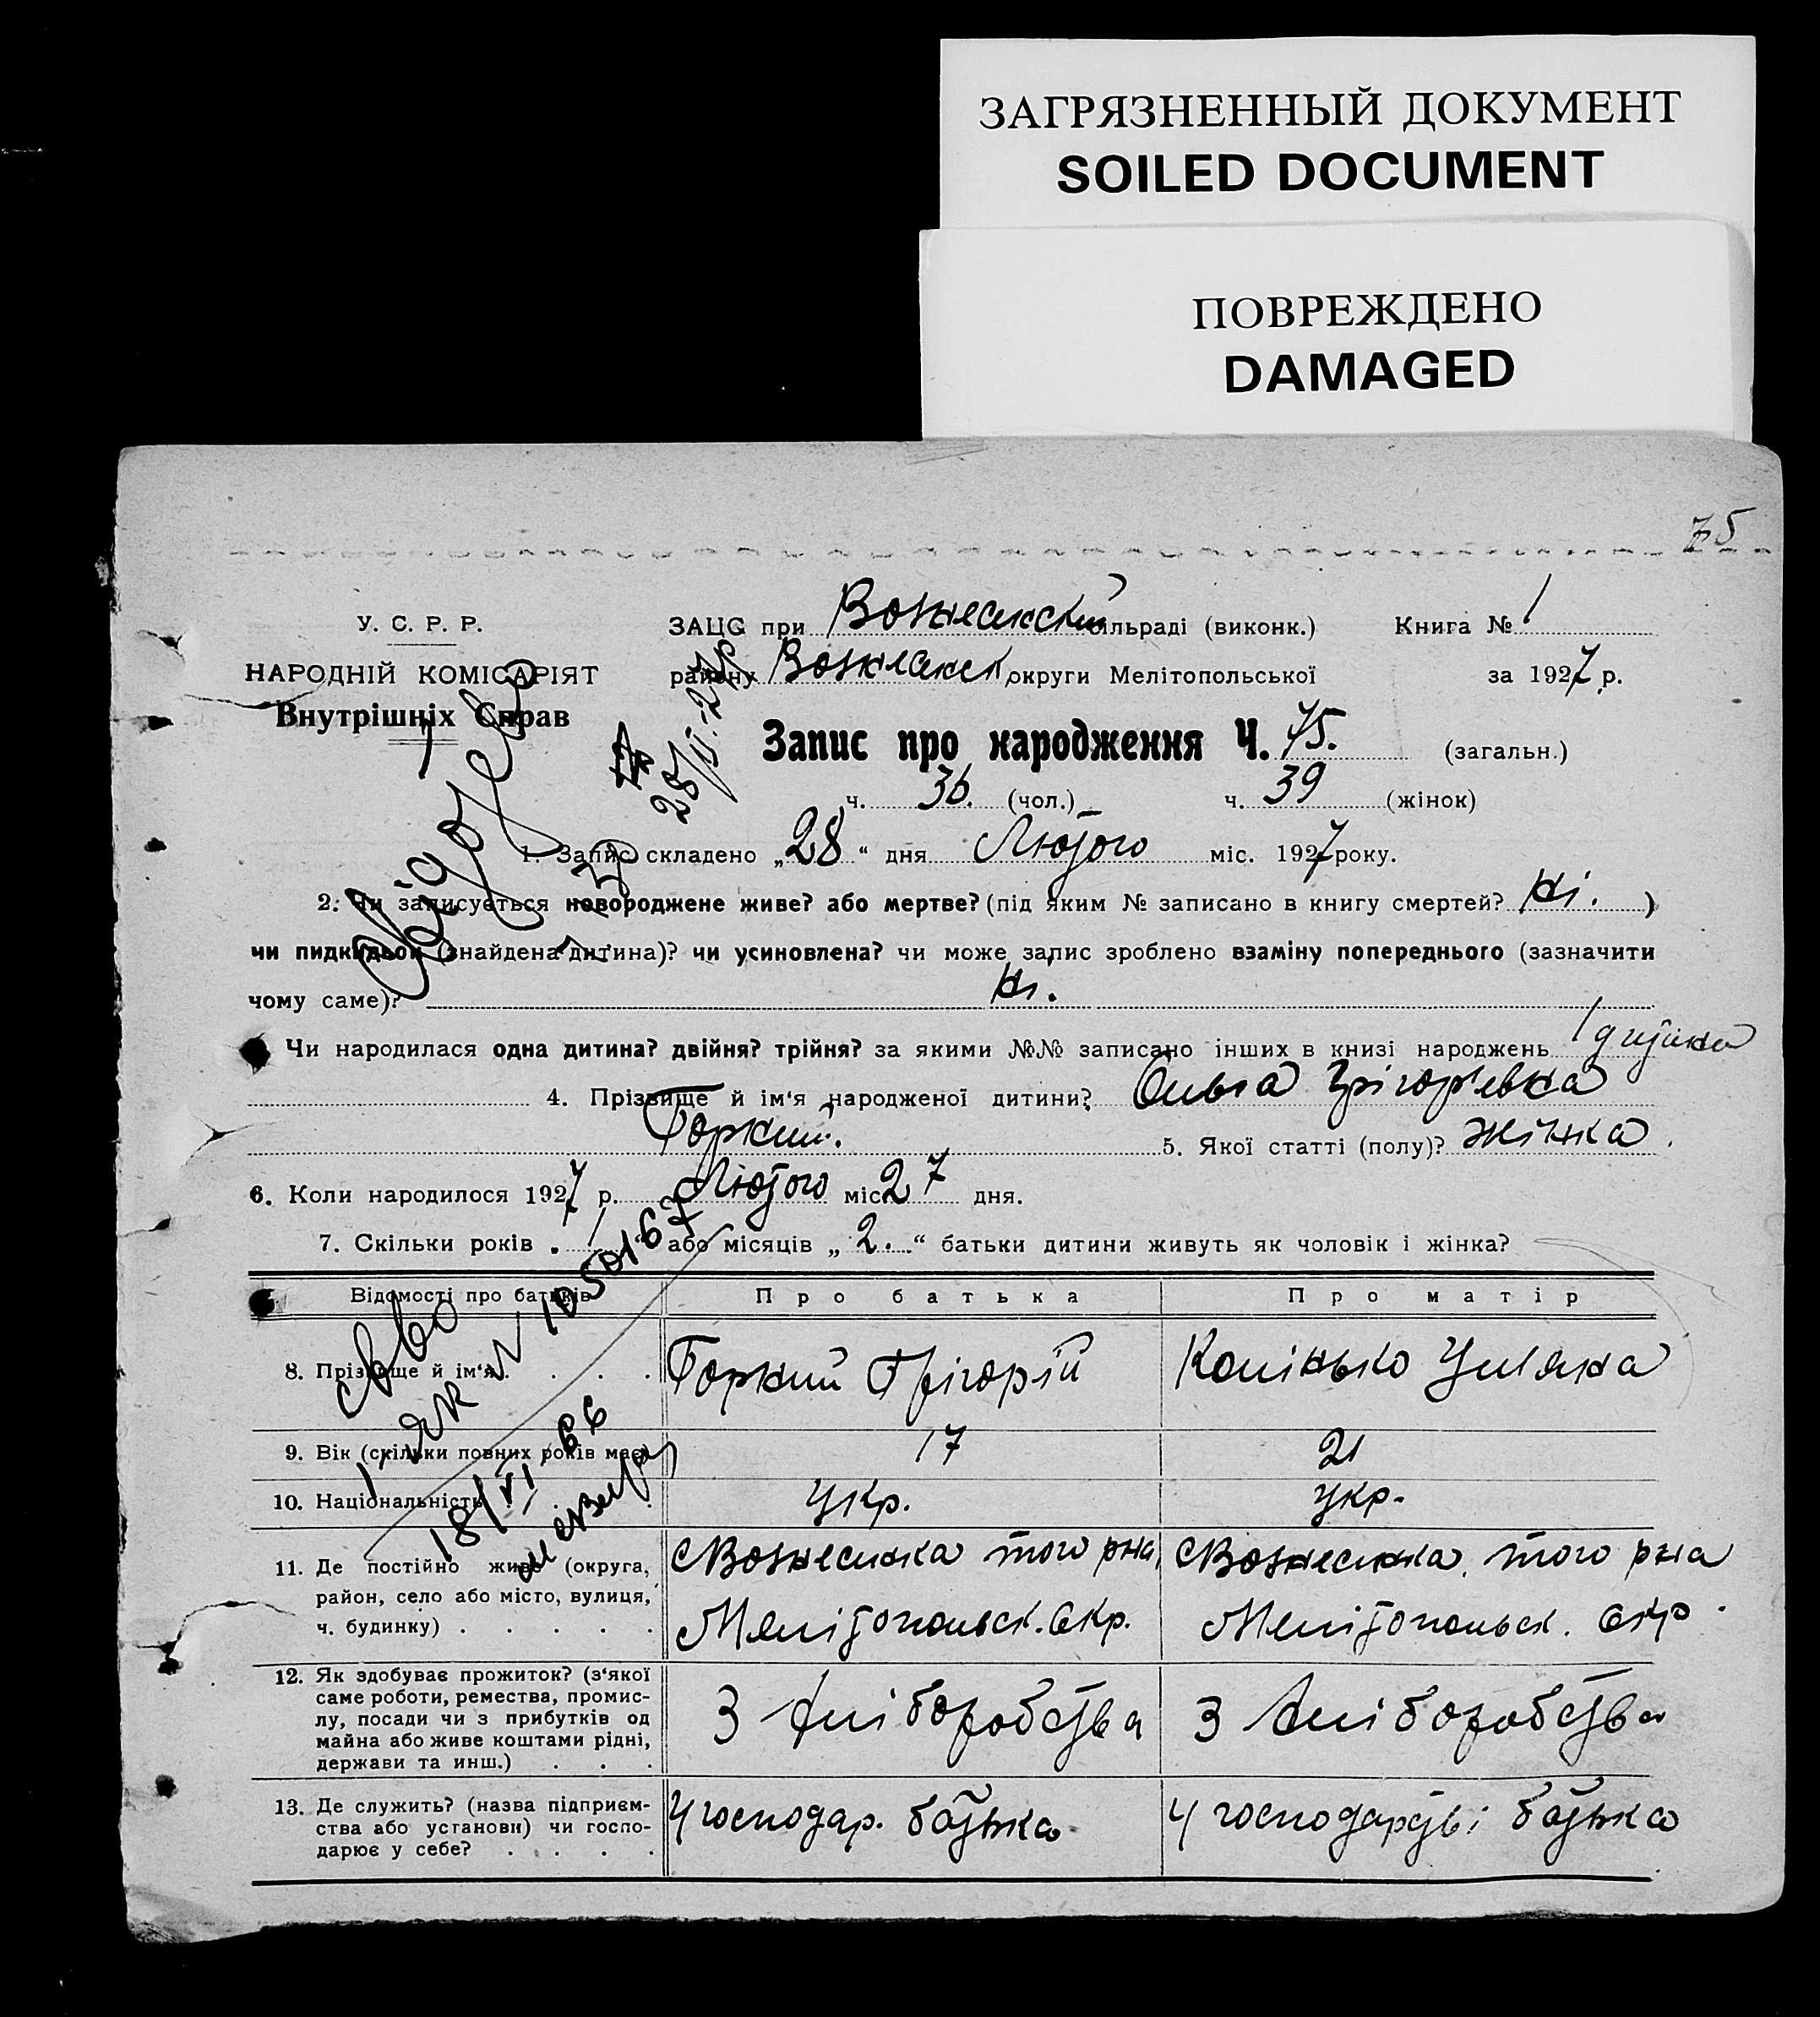 ЗАГРЯЗНЕННЫЙ ДОКУМЕНТ
SOILED DOCUMENT
ПОВРЕЖДЕНО
DAMAGED
75
У. С. Р. Р.
НАРОДНІЙ КОМІСАРІЯТ
Внутрішніх Справ
ЗАЦС при Вознесенский сільраді (виконк.) Книга № 1
району Вознесенк округи Мелітопольської за 1927 р.
28/II-27р
Запис про народження Ч. 75. (загальн.)
ч. 36. (чол.) ч. 39 (жінок)
1. Запис складено „28“ дня Лютого міс. 1927 року.
2. Чи записується новороджене живе? або мертве? (під яким № записано в книгу смертей? Ні. )
чи пидкидьок (знайдена дитина)? чи усиновлена? чи може запис зроблено взаміну попереднього (зазначити
чому саме)? Ні.
Чи народилася одна дитина? двійня? трійня? за якими №№ записано інших в книзі народжень 1 дитина
4. Прізвище й ім‘я народженої дитини? Ольга Грігор'евна
Горкий. 5. Якої статті (полу)? жінка.
6. Коли народилося 1927 р. Лютого міс. 27 дня.
7. Скільки років „ 1 “ або місяців „ 2. “ батьки дитини живуть як чоловік і жінка?
Відомості про батьків Про батька Про матір
8. Прізвище й ім‘я . . . . Горкий Грігорій Колінько Уляна
9. Вік (скільки повних років має) 17 21
10. Національність . . . укр. укр.
11. Де постійно живе (округа, район, село або місто, вулиця, ч. будинку) . . . . .
Вознесенка того рна Мелітопольск. Окр.
Вознесенка того рна Мелітопольск. Окр.
12. Як здобуває прожиток? (з‘якої саме роботи, ремества, промис-
лу, посади чи з прибутків од
майна або живе коштами рідні,
держави та инш.) . . .
З хліборобства З хліборобства
13. Де служить? (назва підприєм-
ства або установи) чи госпо-
дарює у себе? . . . .
У господар. батька У господарстві батька
Сво
1 ЯК N 1050167
18/VI 66